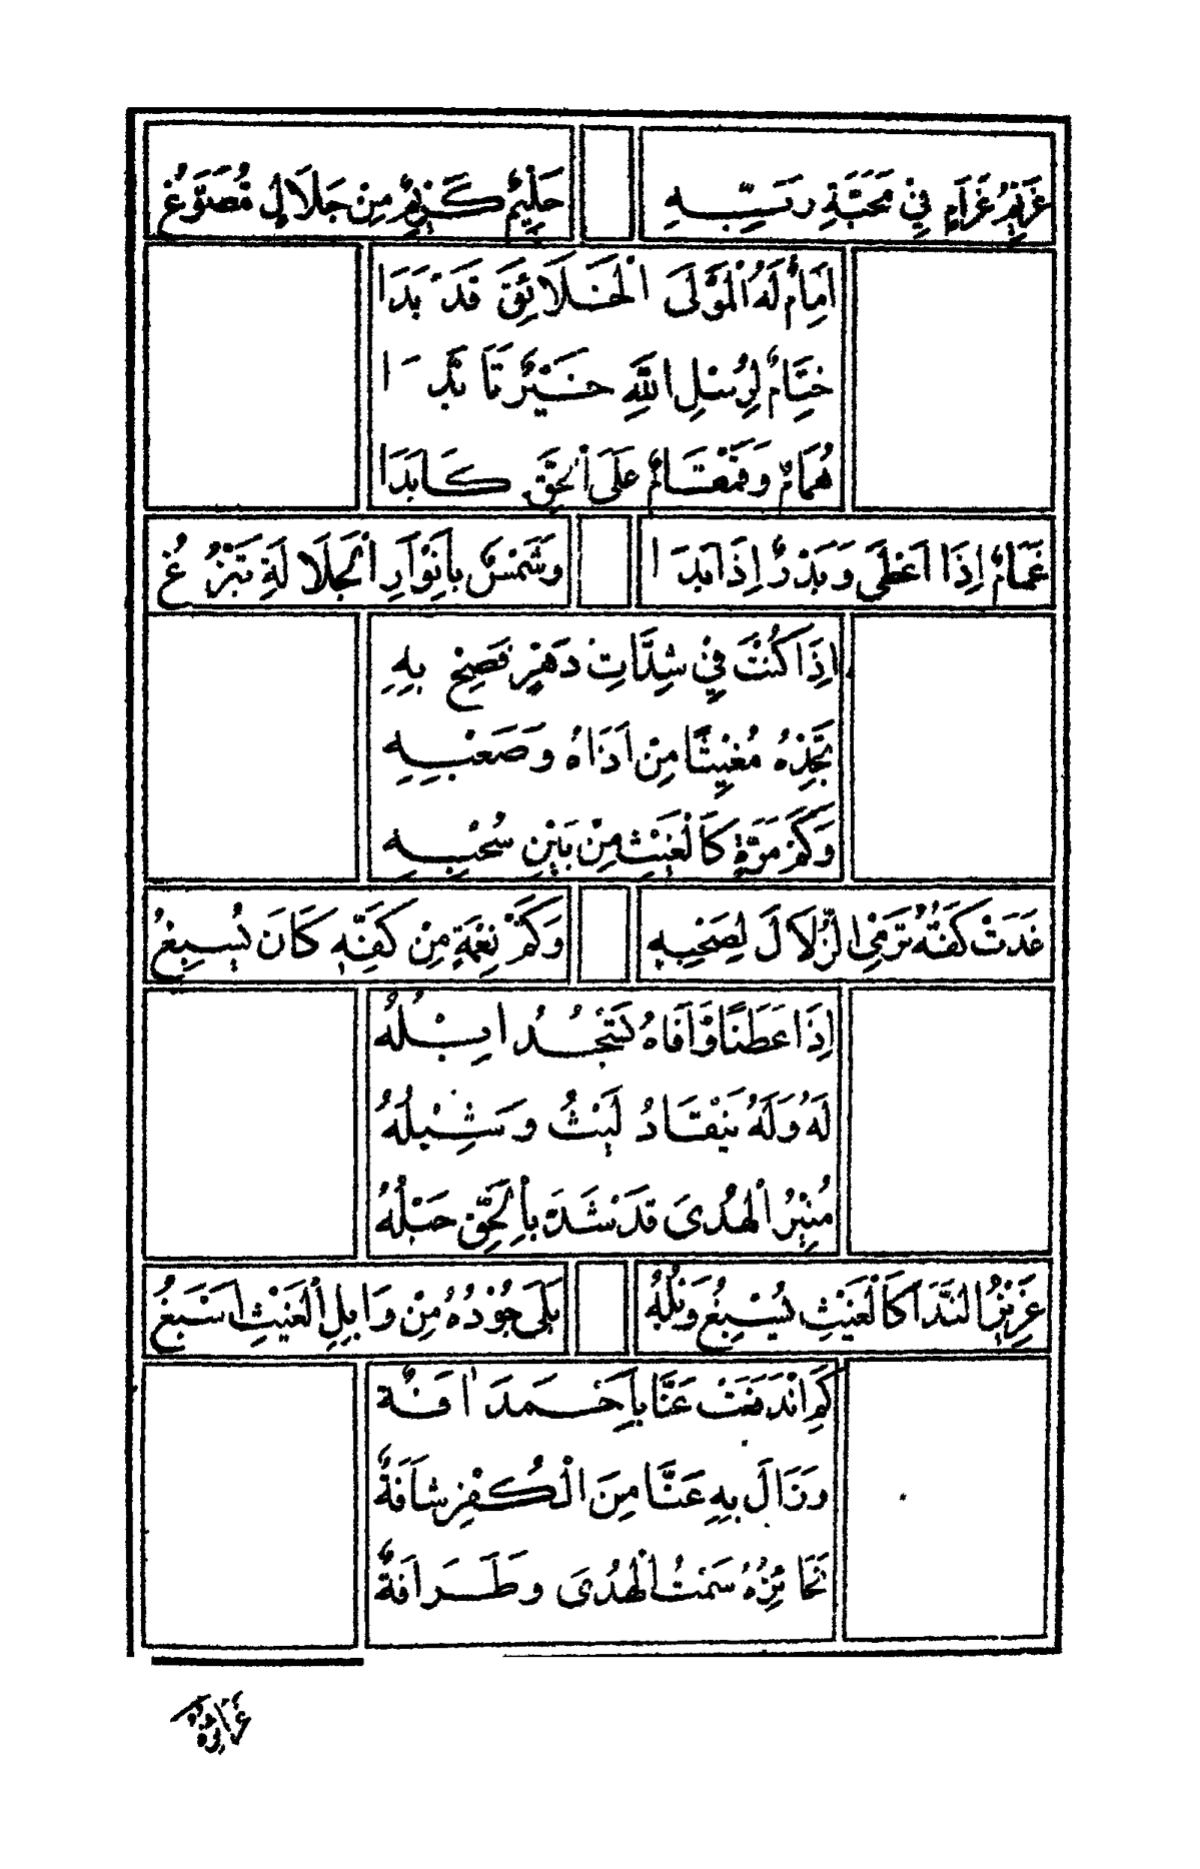 غَرِيمُ غَرَامٍ فِي مَحَبَّةِ رَبِّهِ حَلِيمٌ كَرِيمٌ مِنْ جَلَالٍ مُصَوَّغُ
اِمَامٌ لَهُ الْمَوْلَى الْخَلَائِقَ قَدْ بَدَا
خِتَامٌ لِرُسْلِ اللَّهِ خَيْرٌ تَأَبَّدَا
هُمَامٌ وَقَمْقَامٌ عَلَى الْحَقِّ كَابَدَا
غَمَامٌ اِذَا اَعْطَى وَبَدْرٌ اِذَا بَدَا وَشَمْسٌ بِأَنْوَارِ الْجَلَالَةِ تَبْزُغُ
اِذَا كُنْتَ فِي شِدَّاتِ دَهْرٍ فَصِحْ بِهِ
تَجِدْهُ مُغِيثًا مِنْ اَذَاهُ وَصَعْبِهِ
وَكَمْ مَرَّةٍ كَالْغَيْثِ مِنْ بَيْنِ سُحْبِهِ
غَدَتْ كَفُّهُ تَرْمِى الزُّلَالَ لِصَحْبِهِ وَكَمْ نِعْمَةٍ مِنْ كَفِّهِ كَانَ يُسْبِغُ
اِذَا عَطَنًا وَافَاهُ تَسْتَجِدُ اِبْلُهُ
لَهُ وَلَهُ يَنْقَادُ لَيْثٌ وَشِبْلُهُ
مُنِيرُ الْهُدَى قَدْ شَدَّ بِالْحَقِّ حَبْلُهُ
عَزِيزُ النَّدَا كَالْغَيْثِ يُسْبِغُ وَبْلُهُ بَلَى جُوْدُهُ مِنْ وَابِلِ الْغَيْثِ اَسْبَغُ
كَمِ انْدَفَعَتْ عَنَّا بِأَحْمَدَ اٰفَةٌ
وَزَالَ بِهِ عَنَّا مِنَ الْكُفْرِ شَاَفَةٌ
سَمْتُ الْهُدَى وَطَرَافَةٌ